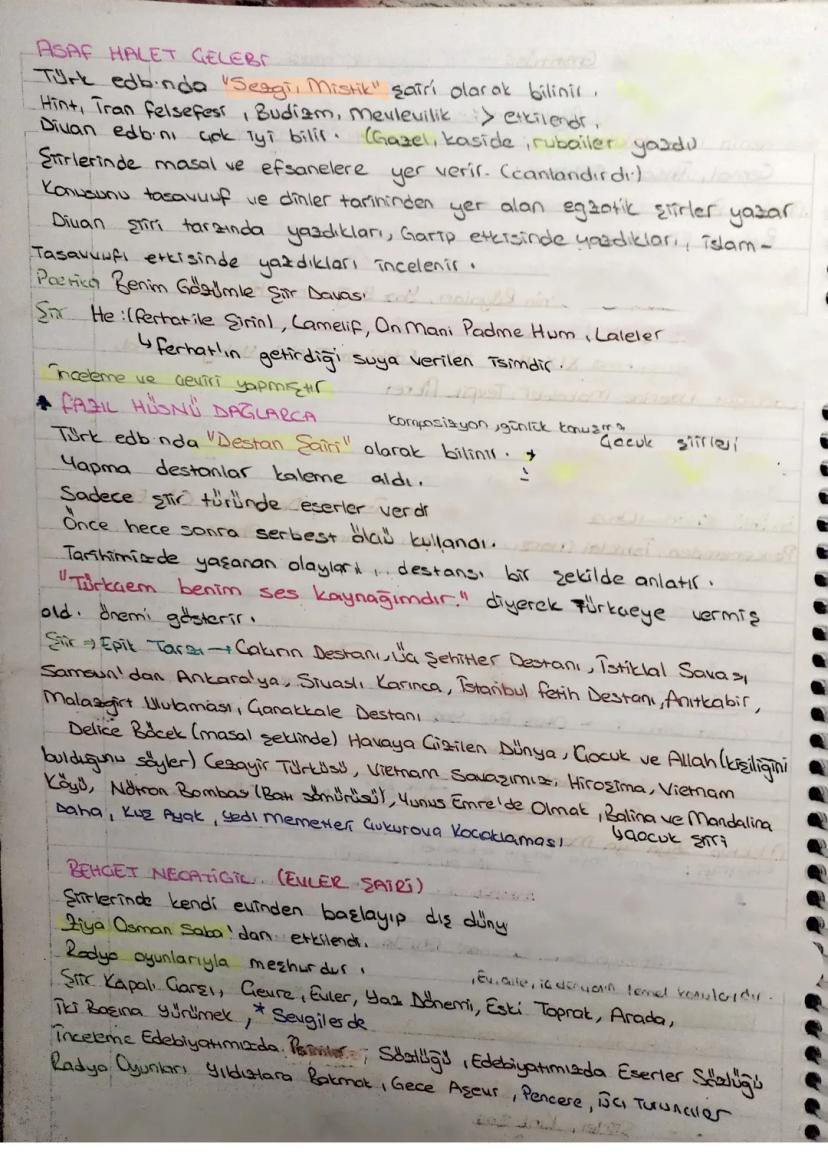 ASAF HALET ÇELEBİ
Türk edb.nda "Sezgi, Mistik" şairi olarak bilinir.
Hint, İran felsefesi, Budizm, Mevlevilik > etkilendi.
Divan edb.nı çok iyi bilir. (Gazel, kaside, rubailer yazdı)
Şiirlerinde masal ve efsanelere yer verir. (canlandırdı.)
Konusunu tasavvuf ve dinler tarihinden yer alan egzotik şiirler yazar
Divan şiiri tarzında yazdıkları, Garip etkisinde yazdıkları, İslam-
Tasavvufi etkisinde yazdıkları incelenir.
Benim Gözümle Şiir Davası
Şiir He: (Ferhat ile Şirin), Lamelif, On Mani Padme Hum, Laleler
↳ Ferhat'ın getirdiği suya verilen isimdir.
İnceleme ve çeviri yapmıştır
FAZIL HÜSNÜ DAĞLARCA
kompozisyon, günlük konuşma Çocuk şiirleri
Türk edb nda "Destan Şairi" olarak bilinir.
Yapma destanlar kaleme aldı.
Sadece şiir türünde eserler verdi
Önce hece sonra serbest ölçü kullandı.
Tarihimizde yaşanan olayları destansı bir şekilde anlatır.
"Türkçem benim ses kaynağımdır." diyerek Türkçeye vermiş
old. önemi gösterir.
Şiir ⇒ Epik Tarzı → Çakırın Destanı, Üç Şehitler Destanı, İstiklal Savaşı,
Samsun'dan Ankara'ya, Sivaslı Karınca, İstanbul Fetih Destanı, Anıtkabir,
Malazgirt Ululaması, Çanakkale Destanı
Delice Böcek (masal şeklinde) Havaya Çizilen Dünya, Çocuk ve Allah (kişiliğini
bulduğunu söyler) Cezayir Türküsü, Vietnam Savaşımız, Hiroşima, Vietnam
Köyü, Nötron Bombası (Batı sömürüsü), Yunus Emre'de Olmak, Balina ve Mandalina
↳ çocuk şiiri
Daha, Kuş Ayak, Yedi Memetler Çukurova Koçaklaması
BEHÇET NECATİGİL (EVLER ŞAİRİ)
Şiirlerinde kendi evinden başlayıp dış düny
Ziya Osman Saba'dan etkilendi.
Radyo oyunlarıyla meşhurdur.
Ev, aile, iç dünyanın temel konularıdır.
Şiir Kapalı Çarşı, Çevre, Evler, Yaz Dönemi, Eski Toprak, Arada,
İki Başına Yürümek, * Sevgilerde
İnceleme Edebiyatımızda Sözlüğü, Edebiyatımızda Eserler Sözlüğü
Radyo Oyunları Yıldızlara Bakmak, Gece Aşevi, Pencere, Üç Turunçlar